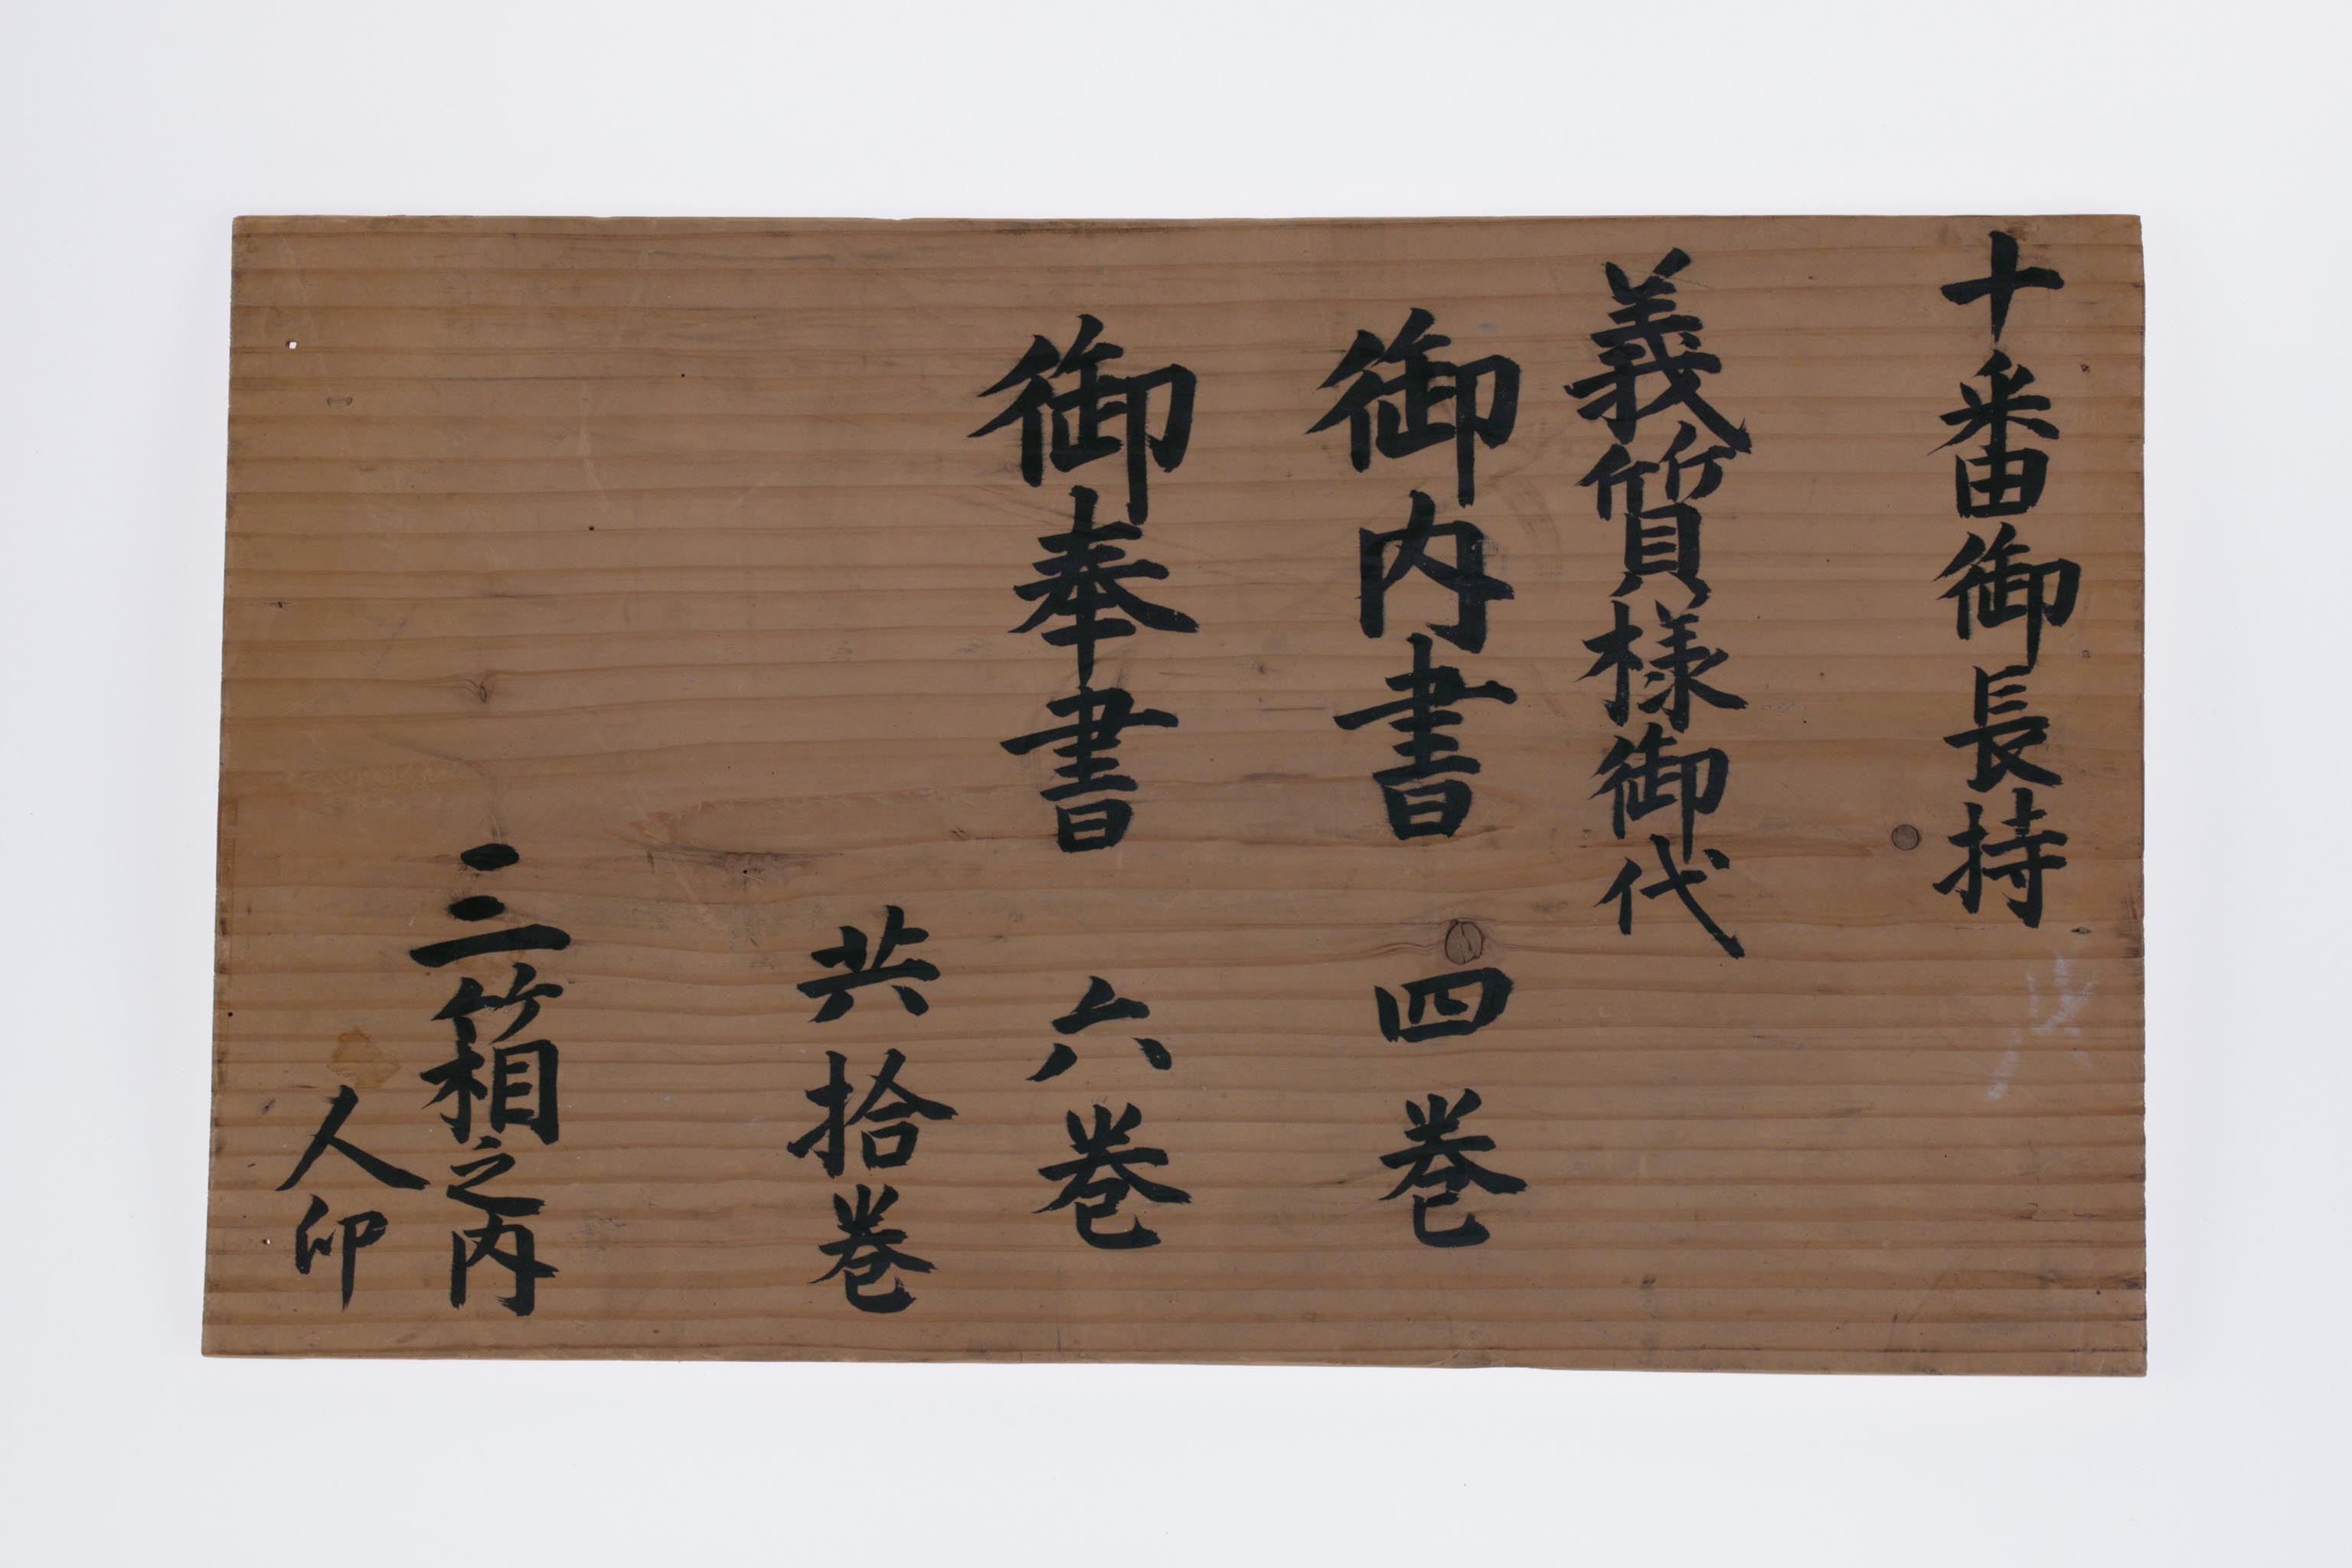 十番御長持
義質様御代
御内書 四巻
御奉書 六巻
共拾巻
三箱之内
人印